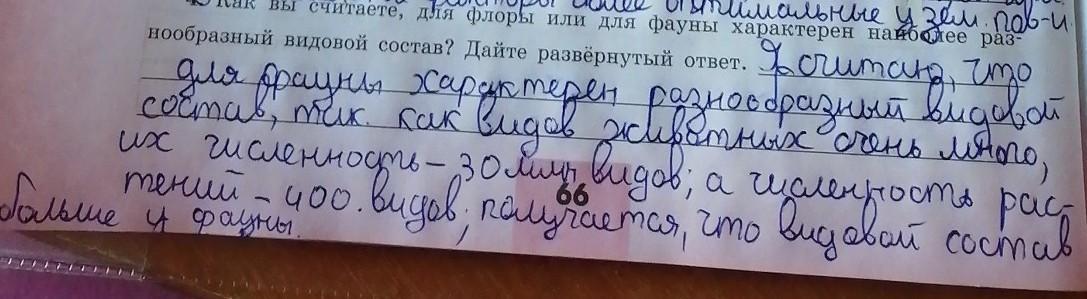 более оптимальные у зем. пов-и.
Как вы считаете, для флоры или для фауны характерен наиболее раз-
нообразный видовой состав? Дайте развёрнутый ответ. Я считаю, что
для фауны характерен разнообразный видовой
состав, так как видов животных очень много,
их численность – 30 млн видов; а численность рас-
тений – 400. видов; получается, что видовой состав
66
больше у фауны.